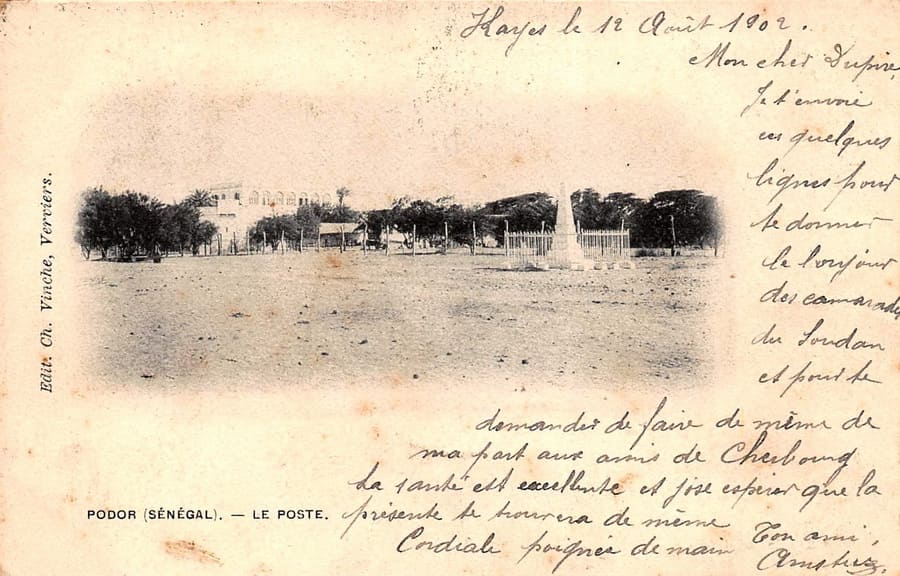 Kayes le 12 Août 1902.
Mon cher Dupire,
Je t'envoie
ces quelques
lignes pour
te donner
le bonjour
des camarades
du Soudan
et pour te
demander de faire de même de
ma part aux amis de Cherbourg
La santé est excellente et j'ose espérer que la
présente te trouvera de même
Cordiale poignée de main
Ton ami,
Edit. Ch. Vinche, Verviers.
PODOR (SÉNÉGAL). — LE POSTE.